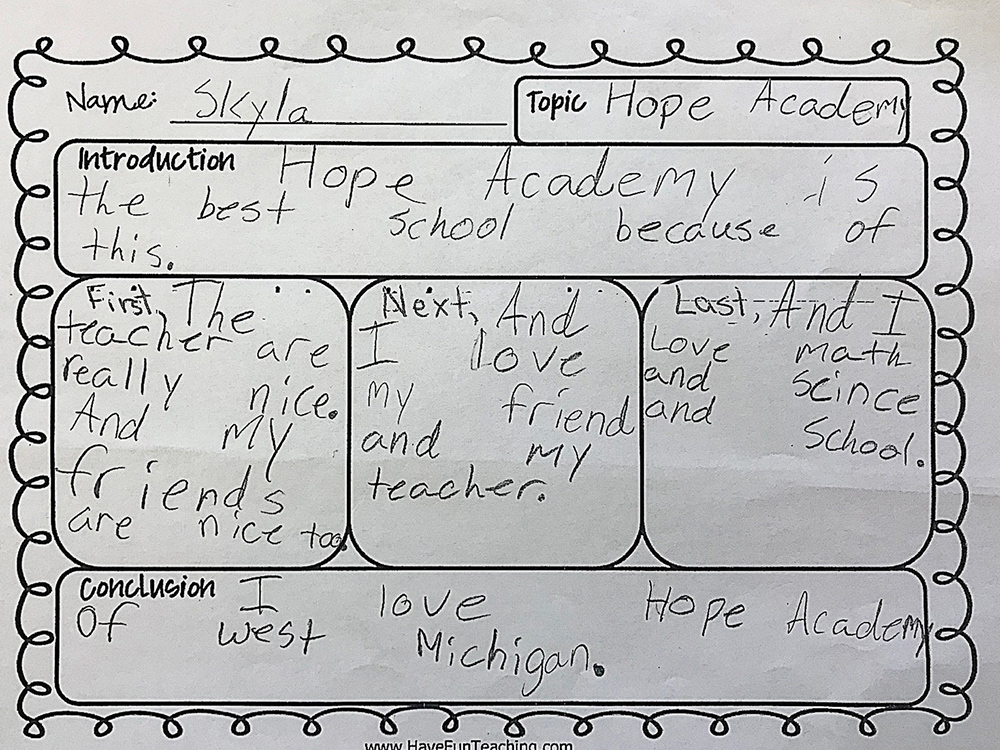 Name: Skyla
Topic Hope Academy
Introduction Hope Academy is
the best school because of
this.
First, The
teacher are
really nice.
And my
friends
are nice too.
Next, And
I love
my friend
and my
teacher.
Last, And I
Love math
and scince
and School.
Conclusion I love Hope Academy
Of west Michigan.
www.HaveFunTeaching.com